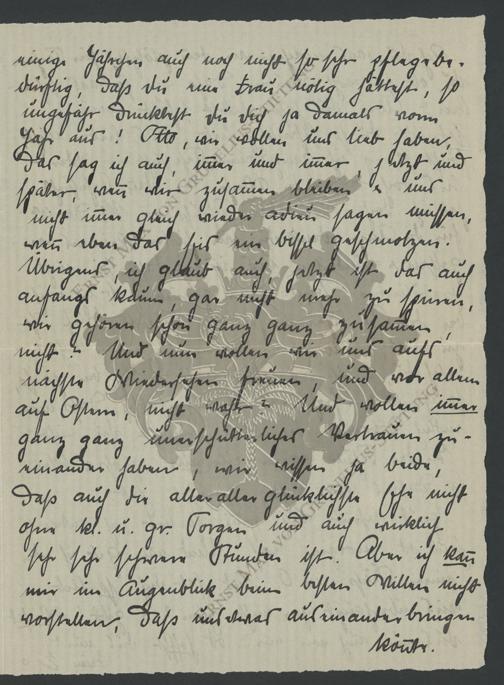 einige Jährchen auch noch nicht so sehr pflegebe-
dürftig, daß du eine Frau nötig hättest, so
ungefähr drücktest du dich ja damals vorm
Jahr aus! Otto, wir wollen uns lieb haben,
das sag ich auch, im̅er und im̅er, jetzt und
später, wen̅ wir zusam̅en bleiben u. uns
nicht im̅er gleich wieder adieu sagen müssen,
wen̅ eben das Eis ein bissl geschmolzen.
Übrigens, ich glaub auch, jetzt ist das auch
anfangs kaum, gar nicht mehr zu spüren,
wir gehören schon ganz ganz zusam̅en,
nicht? Und nun wollen wir uns aufs
nächste Wiedersehen freuen, und vor allem
auf Ostern, nicht wahr? Und wollen im̅er
ganz ganz unerschütterliches Vertrauen zu-
einander haben, wir wissen ja beide,
daß auch die allerallerglücklichste Ehe nicht
ohne kl. u. gr. Sorgen und auch wirklich
sehr sehr schwere Stunden ist. Aber ich kan̅
mir im Augenblick beim besten Willen nicht
vorstellen, daß uns etwas auseinanderbringen
kön̅te.